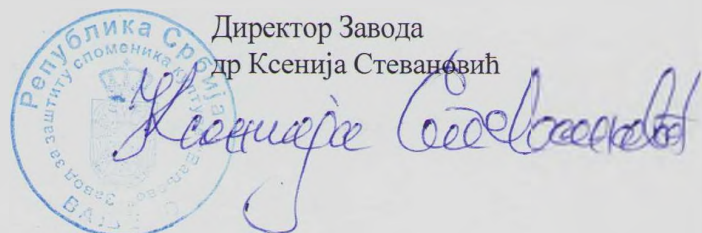 Директор Завода
др Ксенија Стевановић
Ксенија Стевановић
Република Србија
Завод за заштиту споменика културе
Ваљево